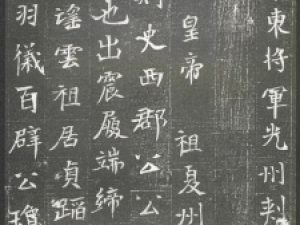 東將軍光州刺
皇帝 祖夏州
史西郡公公
也出震履端締
雲祖居貞蹈
羽儀百辟公